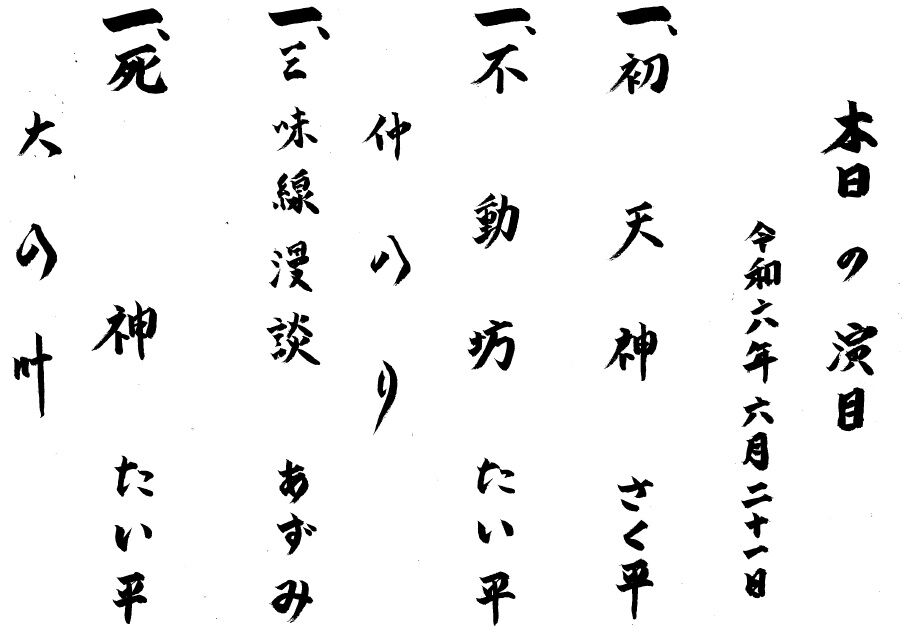 本日の演目
令和六年六月二十一日
一、初天神 さく平
一、不動坊 たい平
仲入り
一、三味線漫談 あずみ
一、死神 たい平
大入叶